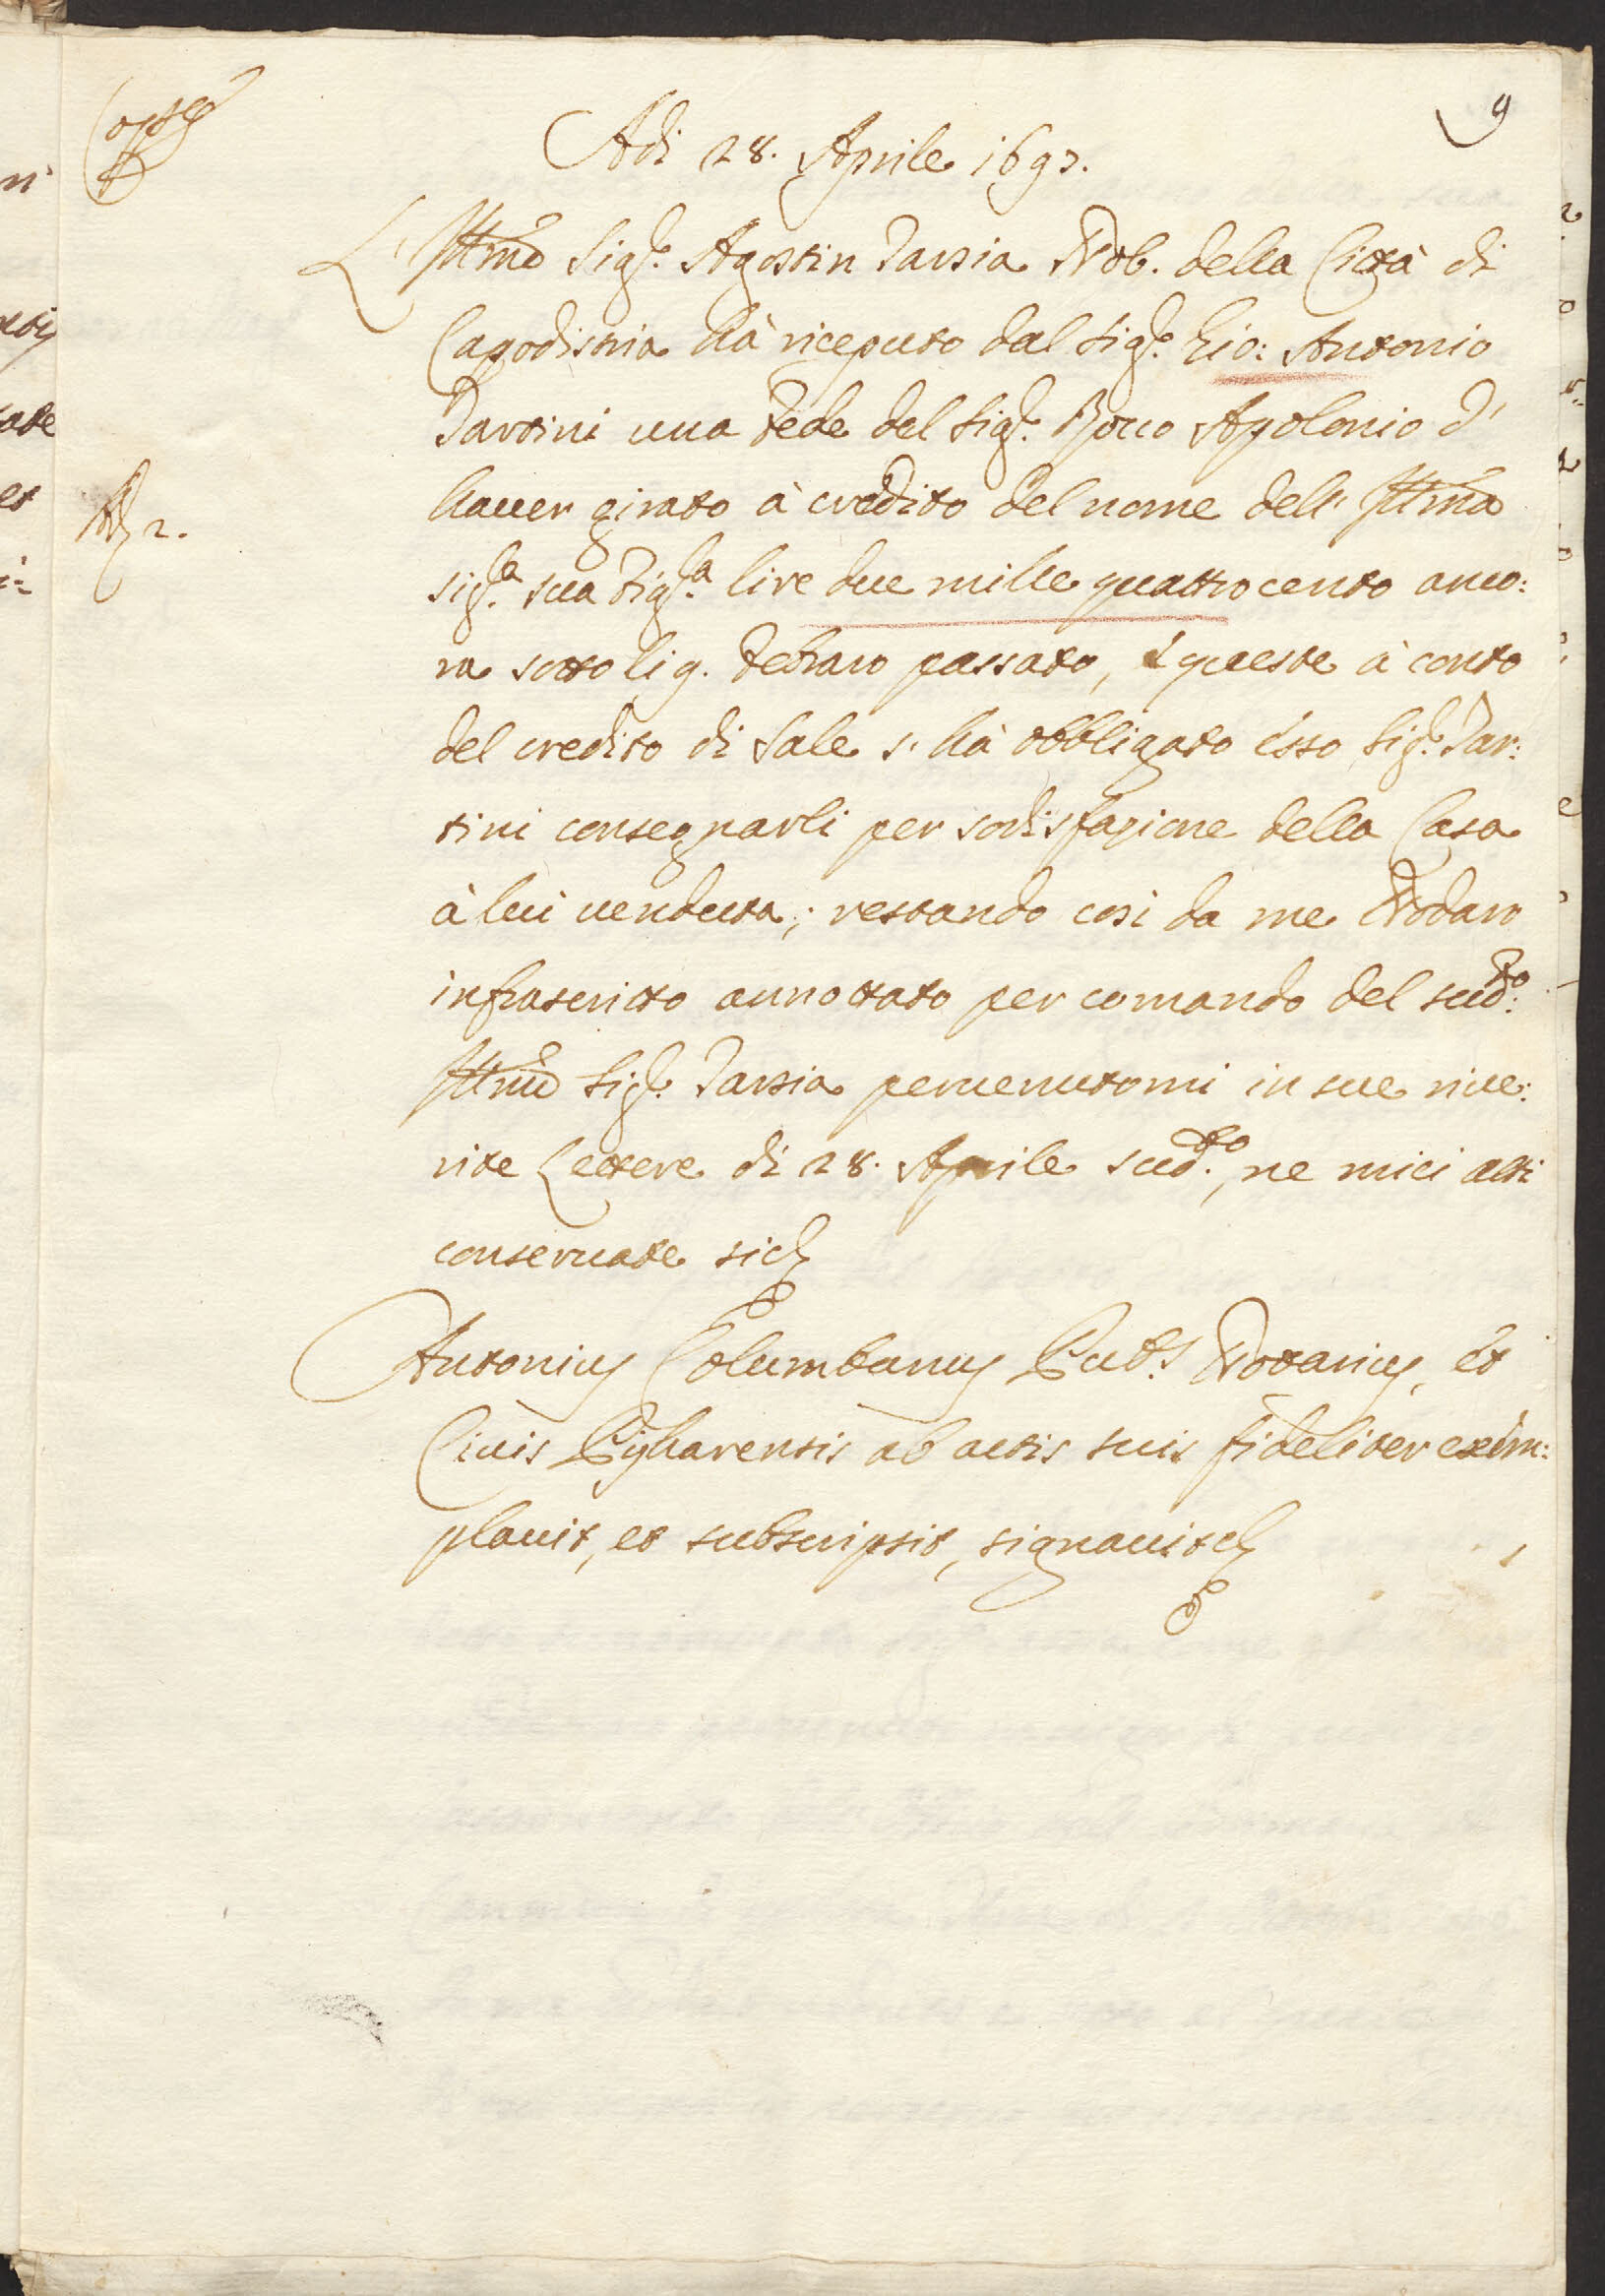 9
Adi 28. Aprile 1693.
L'Illmo Sigr. Agostin Tarsia Nob. della Città di
Capodistria hà riceputo dal Sigr. Gio: Antonio
Tartini una fede del Sigr. Rocco Apolonio d'
hauer girato à credito del nome dell' Illma
Sigra. sua Figla. lire due mille quattrocento anco:
ra sotto li 9. Febraro passato, e queste à conto
del credito di Sale s' hà obbligato esso Sigr. Tar:
tini consegnarli per sodisfazione della Casa
à lui venduta; restando cosi da me Nodaro
infrascritto annottato per comando del sudto:
Illmo Sigr. Tarsia peruenutomi in sue riue:
rite Lettere di 28. Aprile sudto., ne miei atti
conseruate sic
Antonius Columbanus Pubs. Notarius, et
Ciuis Pyrharensis ab actis suis fideliter exim:
plauit, et subscripsit, signauit